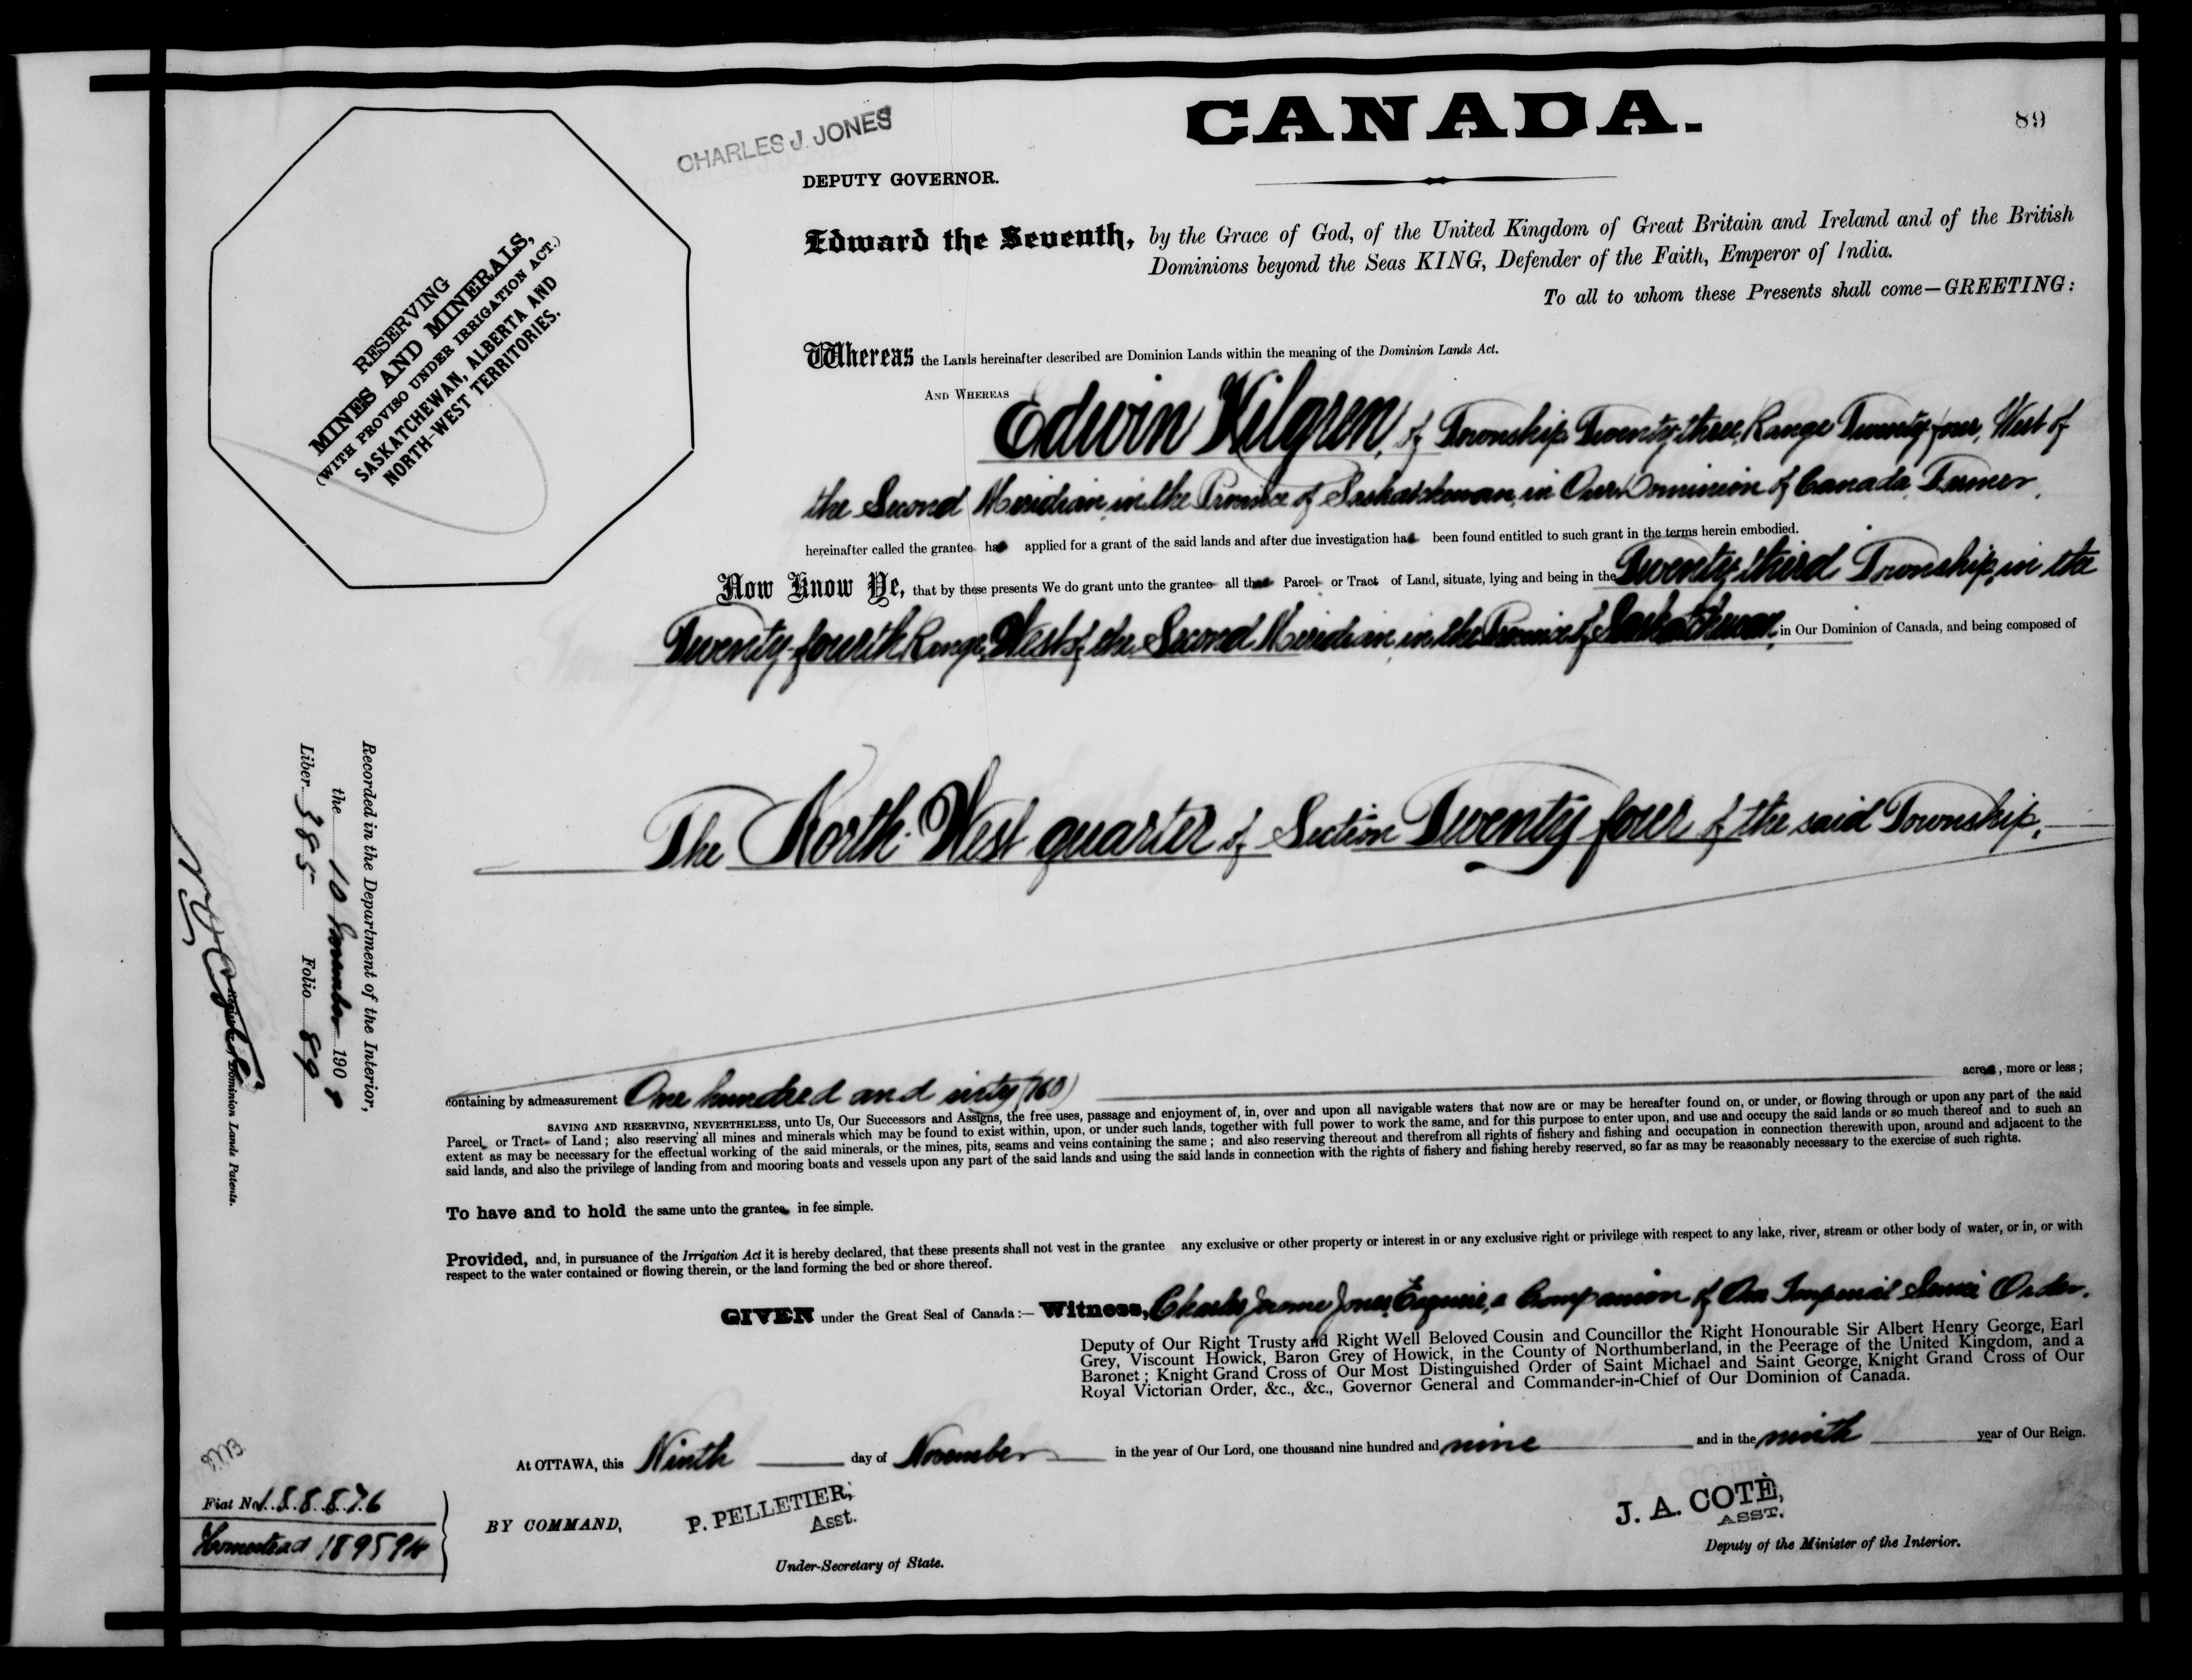 CANADA.
89
CHARLES J. JONES
DEPUTY GOVERNOR.
RESERVING
MINES AND MINERALS,
(WITH PROVISO UNDER IRRIGATION ACT.)
SASKATCHEWAN, ALBERTA AND
NORTH-WEST TERRITORIES.
Edward the Seventh, by the Grace of God, of the United Kingdom of Great Britain and Ireland and of the British
Dominions beyond the Seas KING, Defender of the Faith, Emperor of India.
To all to whom these Presents shall come—GREETING:
Whereas the Lands hereinafter described are Dominion Lands within the meaning of the Dominion Lands Act.
AND WHEREAS Edwin Kilgren, of Township Twenty-three, Range Twenty-four, West of
the Second Meridian, in the Province of Saskatchewan, in Our Dominion of Canada, Farmer,
hereinafter called the grantee has applied for a grant of the said lands and after due investigation has been found entitled to such grant in the terms herein embodied.
Now Know Ye, that by these presents We do grant unto the grantee all that Parcel or Tract of Land, situate, lying and being in the Twenty-third Township, in the
Twenty-fourth Range, West of the Second Meridian, in the Province of Saskatchewan, in Our Dominion of Canada, and being composed of
The North-West quarter of Section Twenty four of the said Township,
containing by admeasurement One hundred and sixty (160) acres, more or less;
SAVING AND RESERVING, NEVERTHELESS, unto Us, Our Successors and Assigns, the free uses, passage and enjoyment of, in, over and upon all navigable waters that now are or may be hereafter found on, or under, or flowing through or upon any part of the said
Parcel or Tract of Land; also reserving all mines and minerals which may be found to exist within, upon, or under such lands, together with full power to work the same, and for this purpose to enter upon, and use and occupy the said lands or so much thereof and to such an
extent as may be necessary for the effectual working of the said minerals, or the mines, pits, seams and veins containing the same; and also reserving thereout and therefrom all rights of fishery and fishing and occupation in connection therewith upon, around and adjacent to the
said lands, and also the privilege of landing from and mooring boats and vessels upon any part of the said lands and using the said lands in connection with the rights of fishery and fishing hereby reserved, so far as may be reasonably necessary to the exercise of such rights.
To have and to hold the same unto the grantee in fee simple.
Provided, and, in pursuance of the Irrigation Act it is hereby declared, that these presents shall not vest in the grantee any exclusive or other property or interest in or any exclusive right or privilege with respect to any lake, river, stream or other body of water, or in, or with
respect to the water contained or flowing therein, or the land forming the bed or shore thereof.
GIVEN under the Great Seal of Canada:— Witness, Charles Jerome Jones, Esquire, a Companion of Our Imperial Service Order.
Deputy of Our Right Trusty and Right Well Beloved Cousin and Councillor the Right Honourable Sir Albert Henry George, Earl
Grey, Viscount Howick, Baron Grey of Howick, in the County of Northumberland, in the Peerage of the United Kingdom, and a
Baronet; Knight Grand Cross of Our Most Distinguished Order of Saint Michael and Saint George, Knight Grand Cross of Our
Royal Victorian Order, &c., &c., Governor General and Commander-in-Chief of Our Dominion of Canada.
At OTTAWA, this Ninth day of November in the year of Our Lord, one thousand nine hundred and nine and in the ninth year of Our Reign.
BY COMMAND,
P. PELLETIER,
Asst.
Under-Secretary of State.
J. A. COTÉ,
ASST.
Deputy of the Minister of the Interior.
Recorded in the Department of the Interior,
the 10 November 190
Liber 385 Folio 89
Dominion Lands Patents.
Fiat No. 188876
Homestead 189594